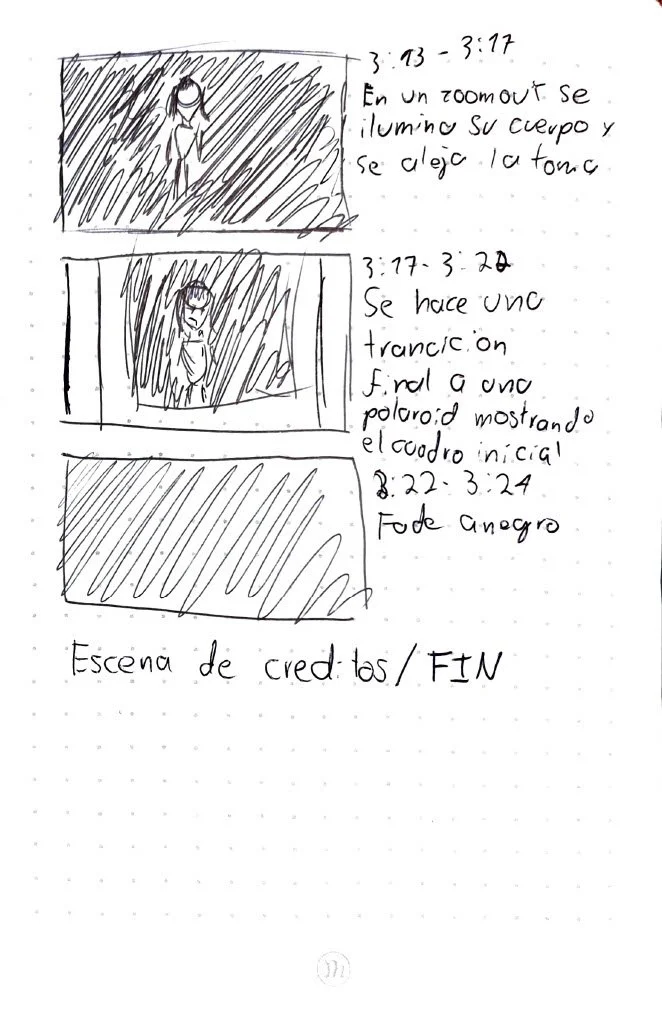 3:13 - 3:17
En un zoomout se
ilumina su cuerpo y
se aleja la toma
3:17 - 3:22
Se hace una
trancicion
final a una
polaroid mostrando
el cuadro inicial
3:22 - 3:24
Fade a negro
Escena de creditos / FIN
m